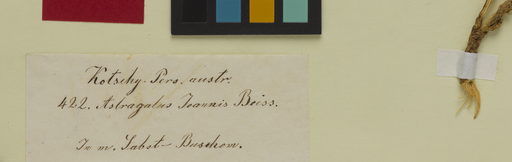 Kotschy. Pers. austr.
422. Astragalus Joannis Boiss.
In m. Sabst-Buschom.